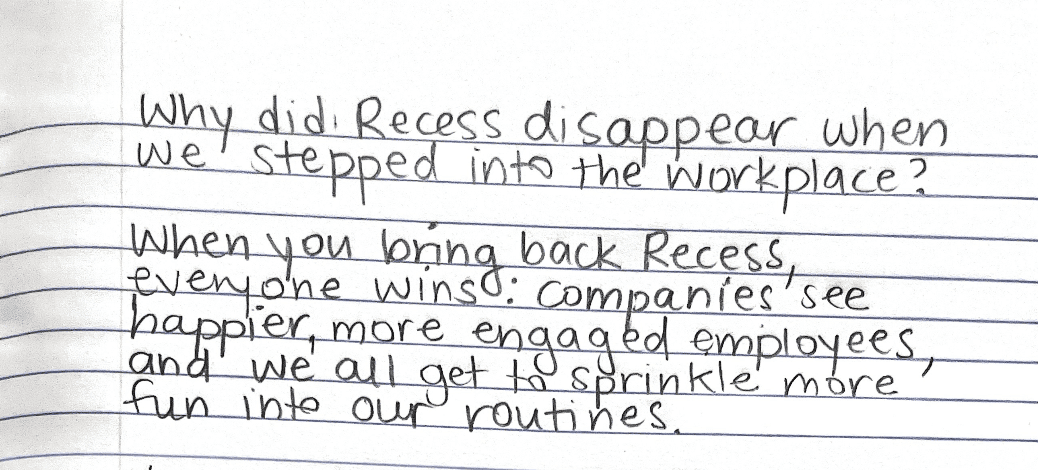 Why did Recess disappear when
we stepped into the workplace?
When you bring back Recess,
everyone wins: companies see
happier, more engaged employees,
and we all get to sprinkle more
fun into our routines.